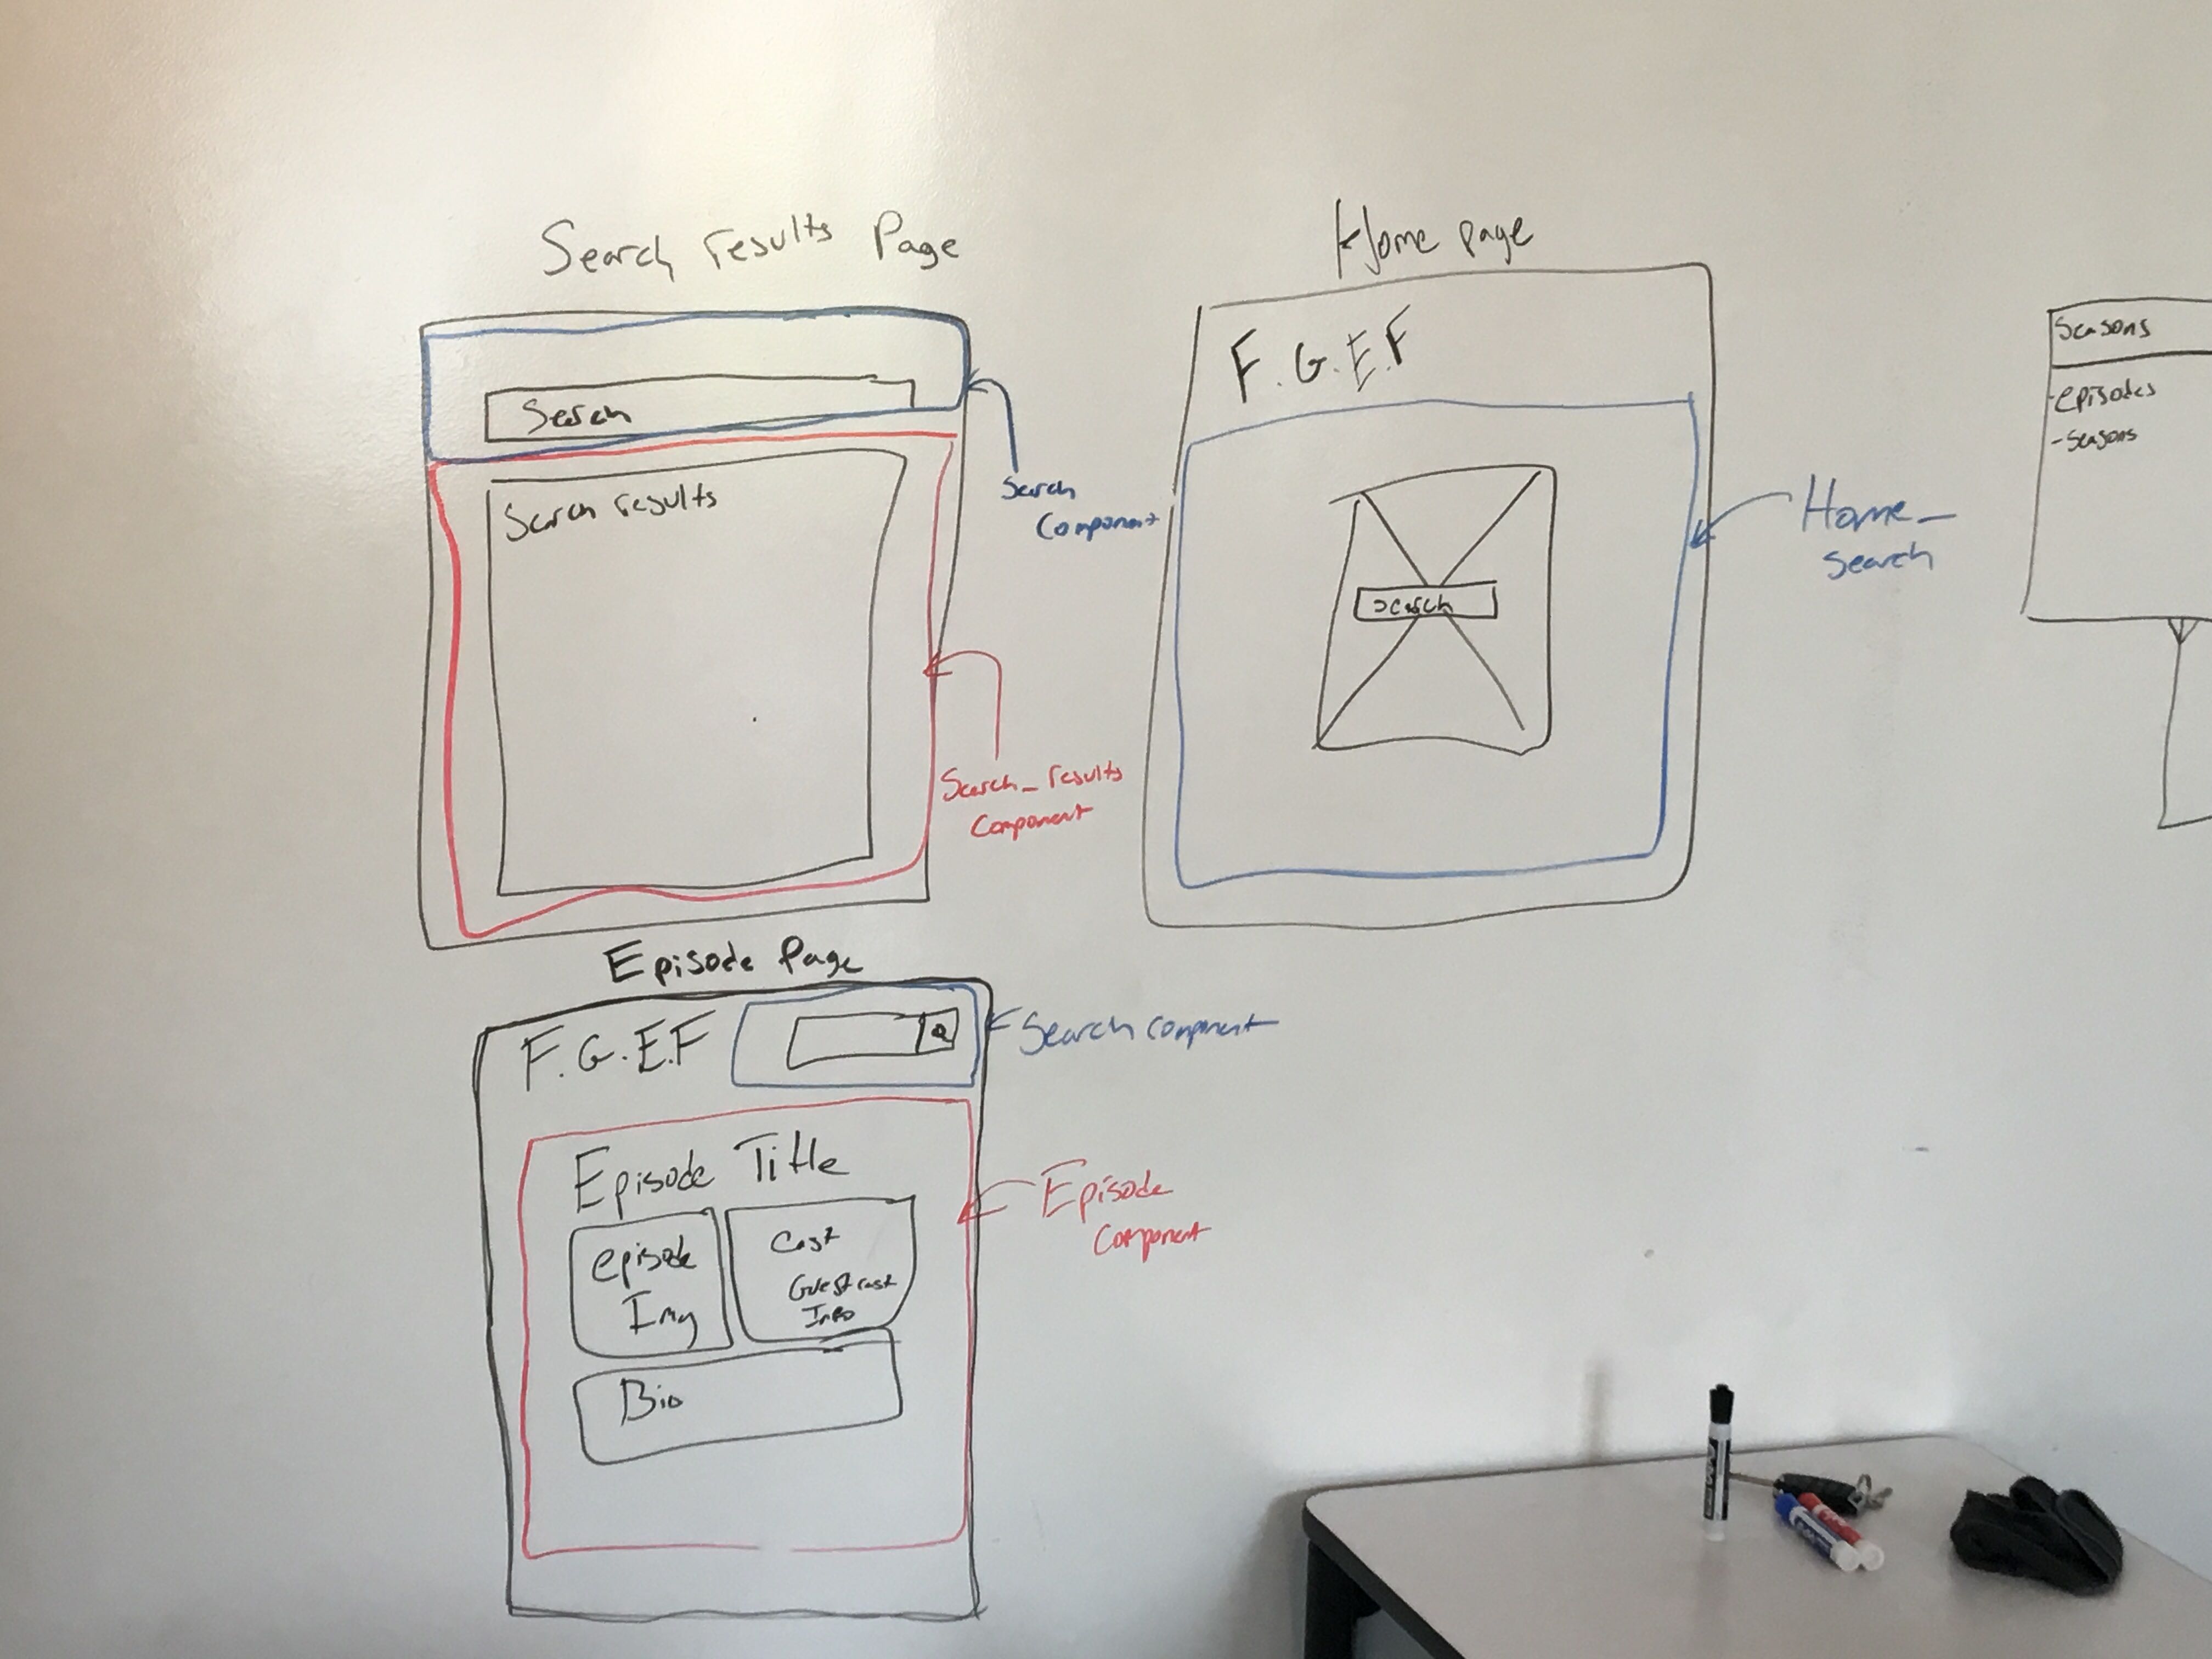 Search results Page
Search
Search results
Search
Component
Search_results
Component
Home page
F.G.E.F
Search
Home_
Search
Seasons
-episodes
-seasons
Episode Page
F.G.E.F
Search component
Episode Title
episode
Img
Cast
Guest cast
Info
Bio
Episode
Component